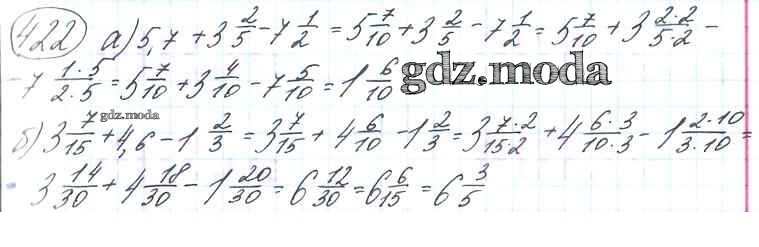 422 а) 5,7 + 3 2/5 - 7 1/2 = 5 7/10 + 3 2/5 - 7 1/2 = 5 7/10 + 3 2·2/5·2 -
- 7 1·5/2·5 = 5 7/10 + 3 4/10 - 7 5/10 = 1 6/10 gdz.moda
gdz.moda
б) 3 7/15 + 4,6 - 1 2/3 = 3 7/15 + 4 6/10 - 1 2/3 = 3 7·2/15·2 + 4 6·3/10·3 - 1 2·10/3·10 =
3 14/30 + 4 18/30 - 1 20/30 = 6 12/30 = 6 6/15 = 6 3/5